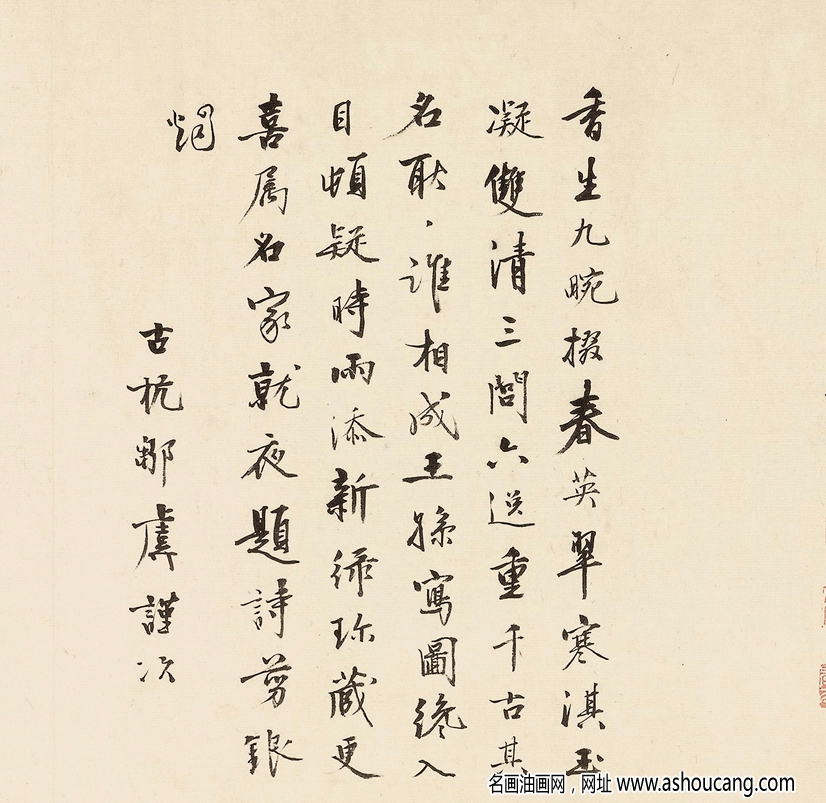 香生九畹掇春英翠寒淇玉
凝雙清三閭六逸重千古其
名耿、誰相成王孫寫圖纔入
目頓疑時雨添新綠珍藏更
喜属名家就夜題詩剪銀
燭
古杭鄒虞謹次
名画油画网，网址 www.ashoucang.com